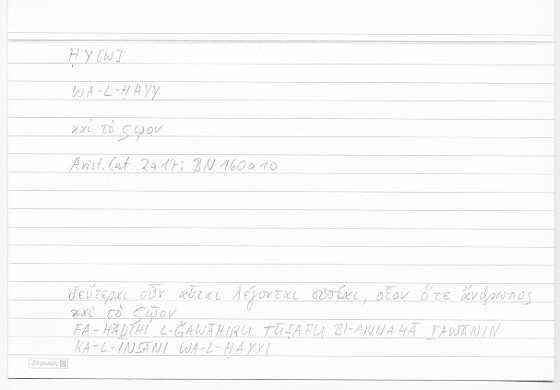 ḤY[W]
WA-L-ḤAYY
καὶ τὸ ζῷον
Arist. Cat. 2a17; BN 160a10
δεύτεραι οὖν αὗται λέγονται οὐσίαι, οἷον ὅτε ἄνθρωπος
καὶ τὸ ζῷον
FA-HĀḎIHI L-ǦAWĀHIRU TŪṢAFU BI-ANNAHĀ ṮAWĀNIN
KA-L-INSĀNI WA-L-ḤAYYI